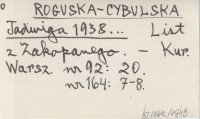 ROGUSKA-CYBULSKA
Jadwiga 1938... List
z Zakopanego. - Kur.
Warsz. nr 92: 20.
nr 164: 7-8.